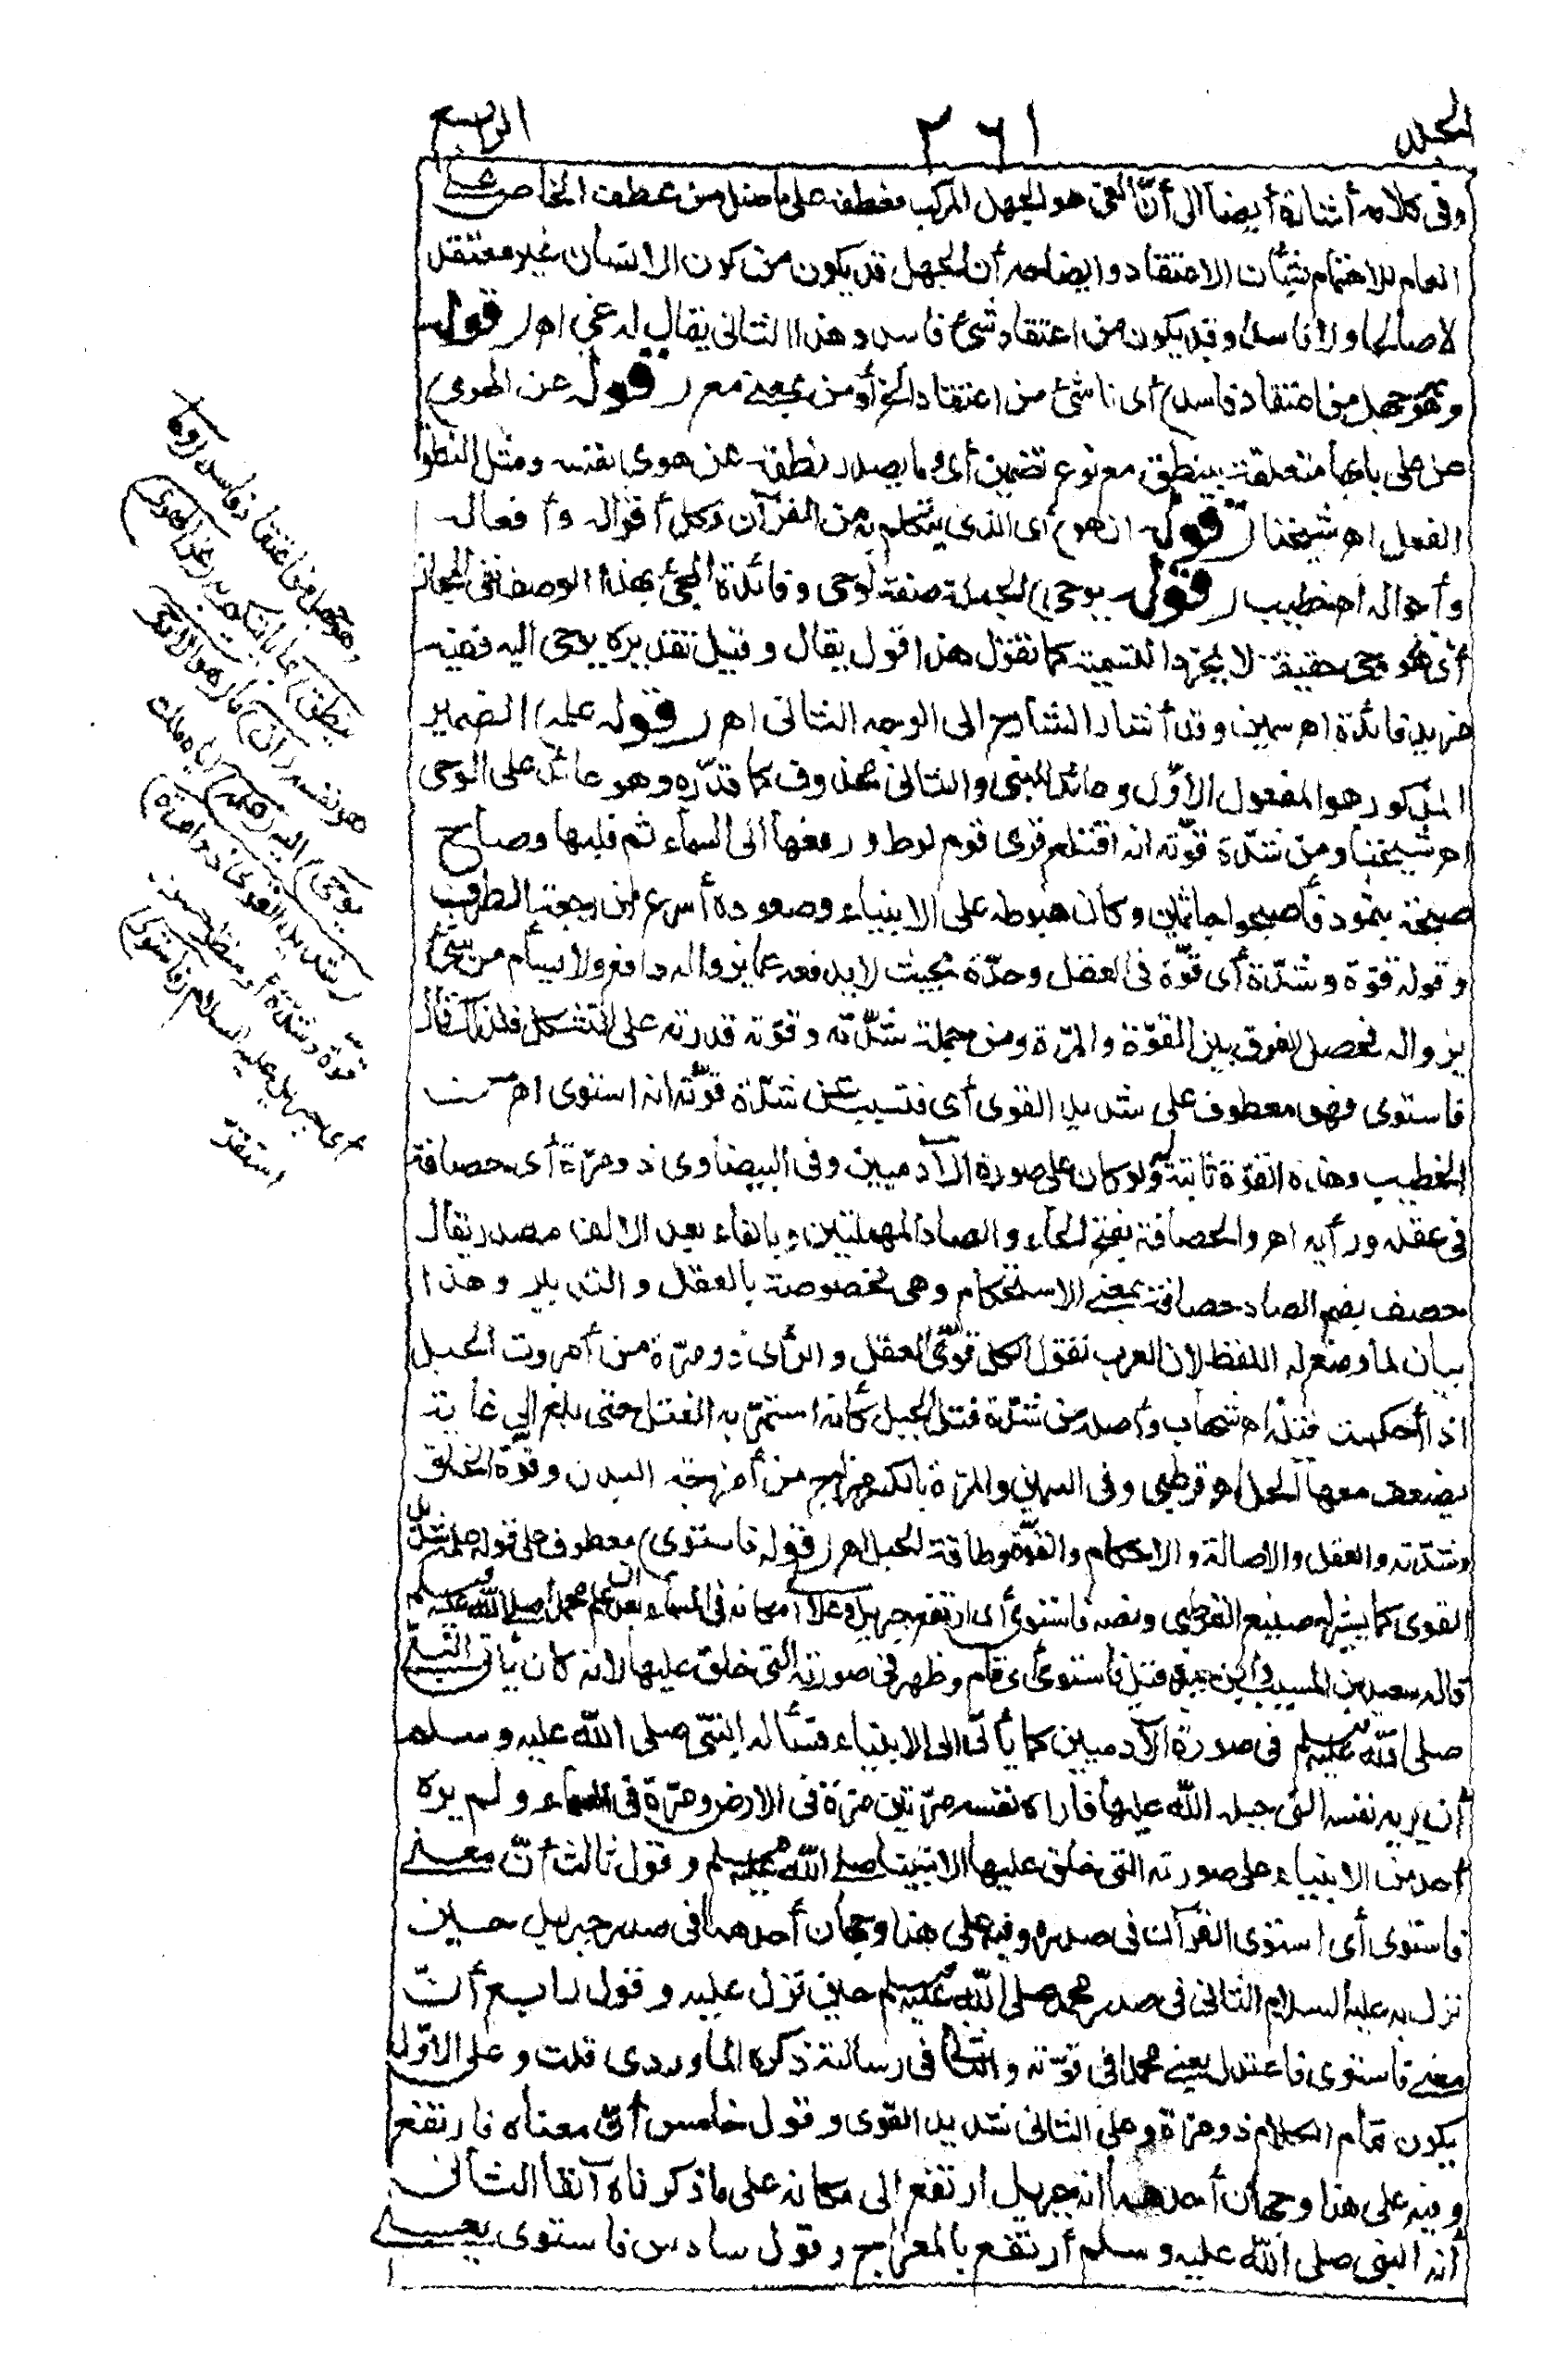 المجلد
٣٦١
الرابع
وفى كلامه أشارة أيضا الى أنّ الغى هو الجهل المركب فعطفه على ما ضل من عطف الخاص على
العام للاهتمام بشأن الاعتقاد وايضاحه أن الجهل قد يكون من كون الانسان غير معتقد
لا صالحا ولا فاسدا وقد يكون من اعتقاد شئ فاسد وهذا الثانى يقال له غى اهـ ( قوله
وهو جهل من اعتقاد فاسد) أى ناشئ من اعتقاد الخ أو من بمعنى مع ( قوله عن الهوى)
عن على بابها متعلقة بينطق مع نوع تضمين أى وما يصدر نطقه عن هوى نفسه ومثل النطق
الفعل اهـ شيخنا ( قوله ان هو) أى الذى يتكلم به من القرآن وكل أقواله وأفعاله
وأحواله اهـ خطيب ( قوله يوحى) الجملة صفة لوحى وفائدة المجئ بهذا الوصف نفى المجاز
أى هو وحى حقيقة لا مجرّد التسمية كما تقول هذا قول يقال وقيل تقديره يوحى اليه ففيه
مزيد فائدة اهـ سمين وقد أشار الشارح الى الوجه الثانى اهـ ( قوله علمه) الضمير
المذكور هو المفعول الأوّل وعائد للنبى والثانى محذوف كما قدّره وهو عائد على الوحى
اهـ شيخنا ومن شدّة قوّته انه اقتلع قرى قوم لوط ورفعها الى السماء ثم قلبها وصاح
صيحة بثمود فأصبحوا جاثمين وكان هبوطه على الانبياء وصعوده أسرع من رجعة الطرف
وقوله قوّة وشدّة أى قوّة فى العقل وحدّة بحيث لا يدفعه عما يزواله دافع ولا يسأم من شئ
يزواله فحصل الفرق بين القوّة والمرّة ومن جملة شدّته وقوّته قدرته على التشكل فلذلك قال
فاستوى فهو معطوف على شديد القوى أى فتسبب عن شدّة قوّته انه استوى اهـ من
الخطيب وهذه القوّة ثابتة له ولو كان على صورة الآدميين وفى البيضاوى ذو مرّة أى حصافة
فى عقله ورأيه اهـ والحصافة بفتح الحاء والصاد المهملتين وبالفاء بعد الالف مصدر يقال
حصف بضم الصاد حصافة بمعنى الاستحكام وهى مخصوصة بالعقل والتدبير وهذا
بيان لما وضع له اللفظ لان العرب تقول لكل قوىّ العقل والرأى ذو مرّة من أمررت الحبل
اذا أحكمت فتله اهـ شهاب وأصله من شدّة فتل الحبل كأنه استمرّ به الفتل حتى بلغ الى غاية
يضعف معها الحل اهـ قرطبى وفى السمين والمرّة بالكسر مزاج من أمزجة البدن وقوّة الخلق
وشدّته والعقل والاصالة والاحكام والقوّة وطاقة الحبل اهـ ( قوله فاستوى) معطوف على قوله علمه شديد
القوى كما يشير له صنيع القرطبى ونصه فاستوى أى ارتفع جبريل وعلا الى مكانه فى السماء بعد ان علم محمدا صلى الله عليه وسلم
قاله سعيد بن المسيب وابن جبير وقيل فاستوى أى قام وظهر فى صورته التى خلق عليها لانه كان يأتى النبىّ
صلى الله عليه وسلم فى صورة الآدميين كما يأتى الى الانبياء فسأله النبىّ صلى الله عليه وسلم
أن يريه نفسه التى جبله الله عليها فأراه نفسه مرّتين مرّة فى الارض ومرّة فى السماء ولم يره
أحد من الانبياء على صورته التى خلق عليها الا نبينا صلى الله عليه وسلم وقول ثالث أنّ معنى
فاستوى أى استوى القرآن فى صدره وفيه على هذا وجهان أحدهما فى صدر جبريل حين
نزل به عليه السلام الثانى فى صدر محمد صلى الله عليه وسلم حين نزل عليه وقول رابع أنّ
معنى فاستوى فاعتدل يعنى محمدا فى قوّته والثانى فى رسالته ذكره الماوردى قلت وعلى الاوّل
يكون تمام الكلام ذو مرّة وعلى الثانى شديد القوى وقول خامس أنّ معناه فارتفع
وفيه على هذا وجهان أحدهما انه جبريل ارتفع الى مكانه على ما ذكرناه آنفا الثانى
أنه النبى صلى الله عليه وسلم أرتفع بالمعراج وقول سادس فاستوى يعنى
وهو جهل من اعتقاد فاسد (وما
ينطق) بما يأتيكم به (عن الهوى)
هو نفسه (ان) ما (هو الا وحى
يوحى) اليه (علمه) اياه ملك
(شديد القوى ذو مرّة)
قوّة وشدّة أو منظر حسن
أى جبريل عليه السلام (فاستوى)
استقرّ